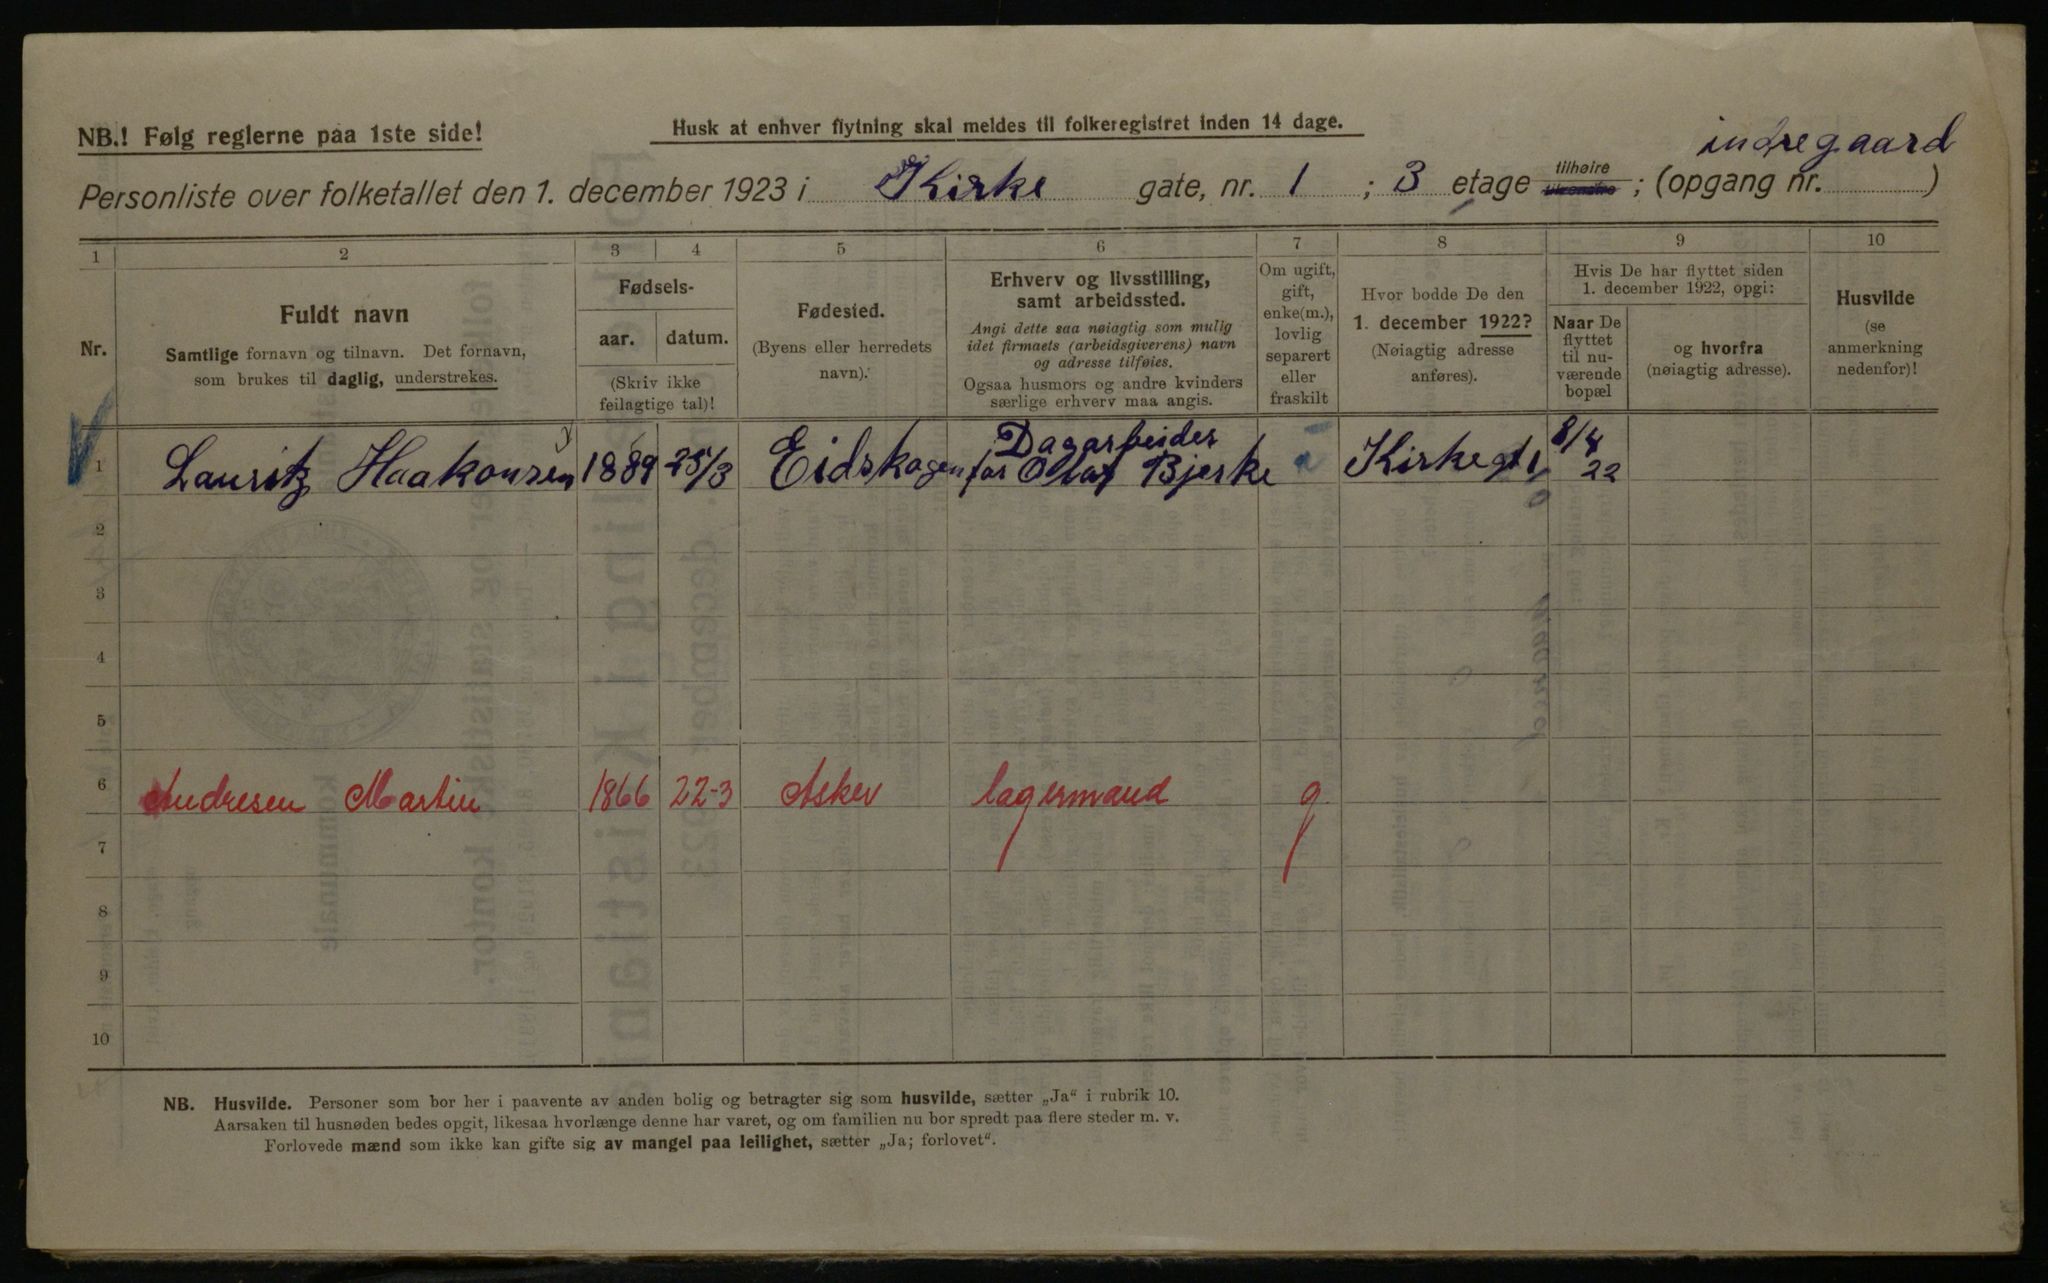 NB.! Følg reglerne paa 1ste side!
Husk at enhver flytning skal meldes til folkeregistret inden 14 dage.
indregaard
Personliste over folketallet den 1. december 1923 i Kirke gate, nr. 1 ; 3 etage tilhøire tilvenstre ; (opgang nr. )
1 2 3 4 5 6 7 8 9 10
Nr.
Fuldt navn
Samtlige fornavn og tilnavn. Det fornavn,
som brukes til daglig, understrekes.
Fødsels-
aar. datum.
(Skriv ikke
feilagtige tal)!
Fødested.
(Byens eller herredets
navn).
Erhverv og livsstilling,
samt arbeidssted.
Angi dette saa nøiagtig som mulig
idet firmaets (arbeidsgiverens) navn
og adresse tilføies.
Ogsaa husmors og andre kvinders
særlige erhverv maa angis.
Om ugift,
gift,
enke(m.),
lovlig
separert
eller
fraskilt
Hvor bodde De den
1. december 1922?
(Nøiagtig adresse
anføres).
Hvis De har flyttet siden
1. december 1922, opgi:
Naar De
flyttet
til nu-
værende
bopæl
og hvorfra
(nøiagtig adresse).
Husvilde
(se
anmerkning
nedenfor)!
1 Lauritz Haakonsen 1889 25/3 Eidskogen Dagarbeider for Olaf Bjerke Kirkegt 1 8/4 22
2
3
4
5
6 Andresen Martin 1866 22-3 Asker lagermand g
7
8
9
10
NB. Husvilde. Personer som bor her i paavente av anden bolig og betragter sig som husvilde, sætter „Ja“ i rubrik 10.
Aarsaken til husnøden bedes opgit, likesaa hvorlænge denne har varet, og om familien nu bor spredt paa flere steder m. v.
Forlovede mænd som ikke kan gifte sig av mangel paa leilighet, sætter „Ja; forlovet“.